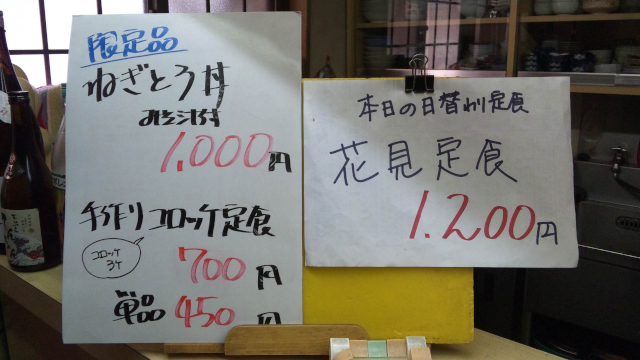 限定品
ねぎとろ丼
みそ汁付
1,000円
手作りコロッケ定食
コロッケ
3ケ
700円
単品 450円
本日の日替わり定食
花見定食
1.200円